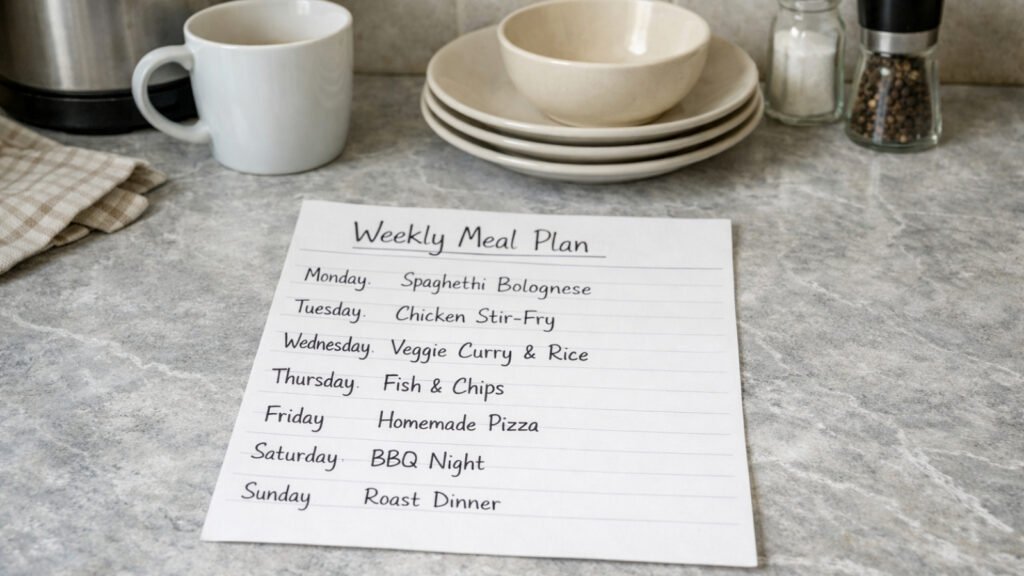 Weekly Meal Plan
Monday. Spaghethi Bolognese
Tuesday. Chicken Stir-Fry
Wednesday. Veggie Curry & Rice
Thursday. Fish & Chips
Friday Homemade Pizza
Saturday. BBQ Night
Sunday Roast Dinner